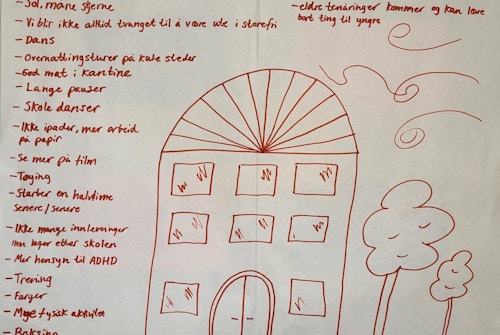 - Sol, måne stjerne
- Vi blir ikke alltid tvunget til å være ute i storefri
- Dans
- Overnattingsturer på kule steder
- God mat i kantine
- Lange pauser
- Skole danser
- Ikke ipader, mer arbeid
på papir
- Se mer på film
- Tøying
- Starter en halvtime
senere/senere
- Ikke mange innleveringer
inn lager etter skolen
- Mer hensyn til ADHD
- Trening
- Farger
- Mye fysisk aktivitet
- Boksing
- eldre tenåringer kommer og kan lære
bort ting til yngre